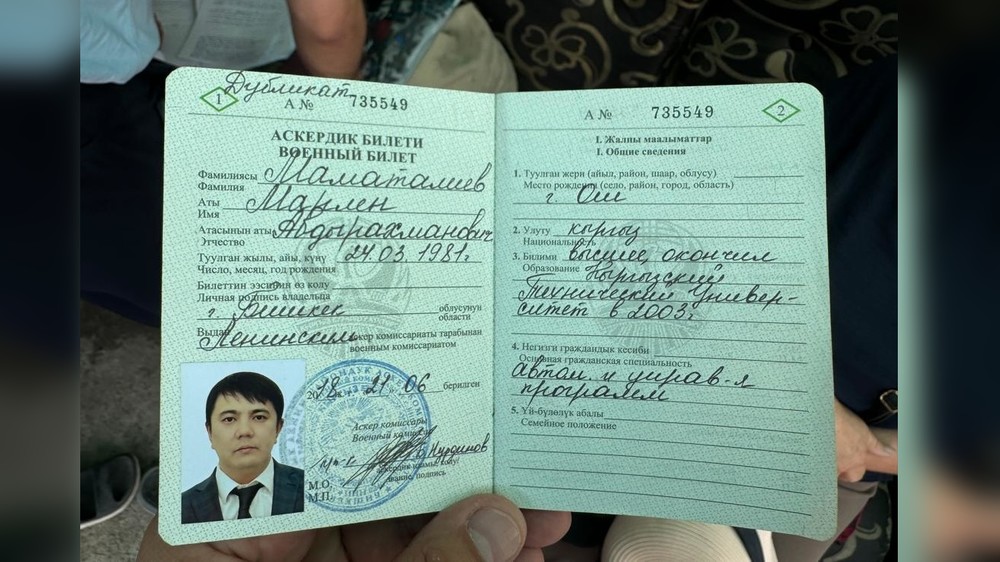 Дубликат
1
А № 735549
АСКЕРДИК БИЛЕТИ
ВОЕННЫЙ БИЛЕТ
Фамилиясы Маматалиев
Фамилия
Аты Марлен
Имя
Атасынын аты Абдырахманович
Отчество
Туулган жылы, айы, күнү 24.03.1981г.
Число, месяц, год рождения
Билеттин ээсинин өз колу
Личная подпись владельца
г. Бишкек облусунун
области
Выдан Ленинским аскер комиссариаты тарабынан
военным комиссариатом
21 06 берилген
Аскер комиссары
Военный комиссар
М.О.
М.П.
А № 735549
2
I. Жалпы маалыматтар
I. Общие сведения
1. Туулган жери (айыл, район, шаар, облусу)
Место рождения (село, район, город, область)
г. Ош
2. Улуту кыргыз
Национальность
3. Билими высшее, окончил
Образование Кыргызский
Технический Универ-
ситет в 2003г
4. Негизги граждандык кесиби
Основная гражданская специальность
автом. и управ-я
5. Үй-бүлөлүк абалы
Семейное положение